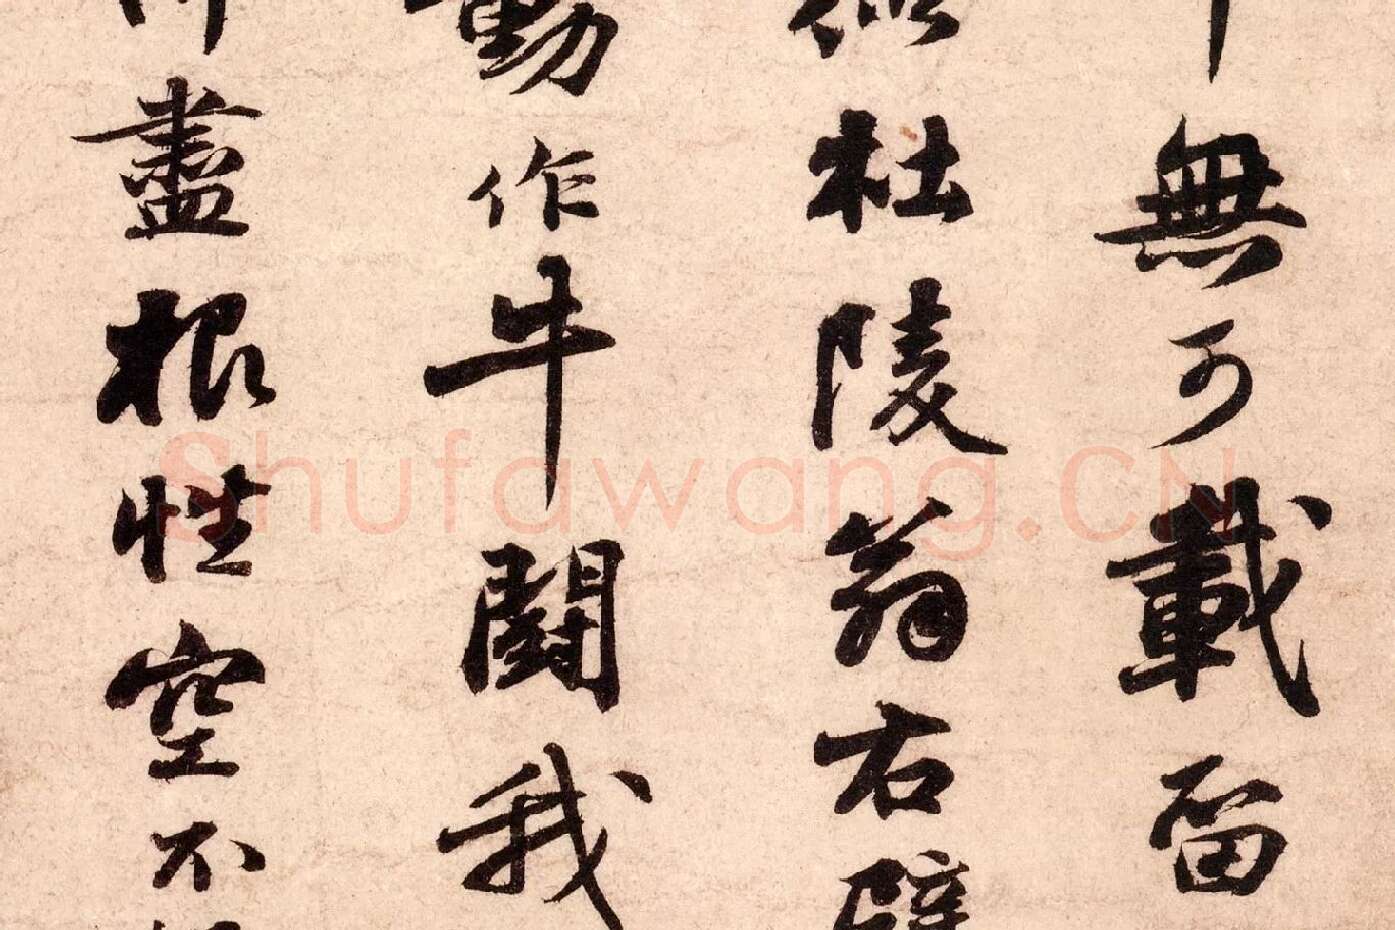 無可載留
似杜陵翁右臂
動作牛鬪我
盡根性空不
Shufawang.CN